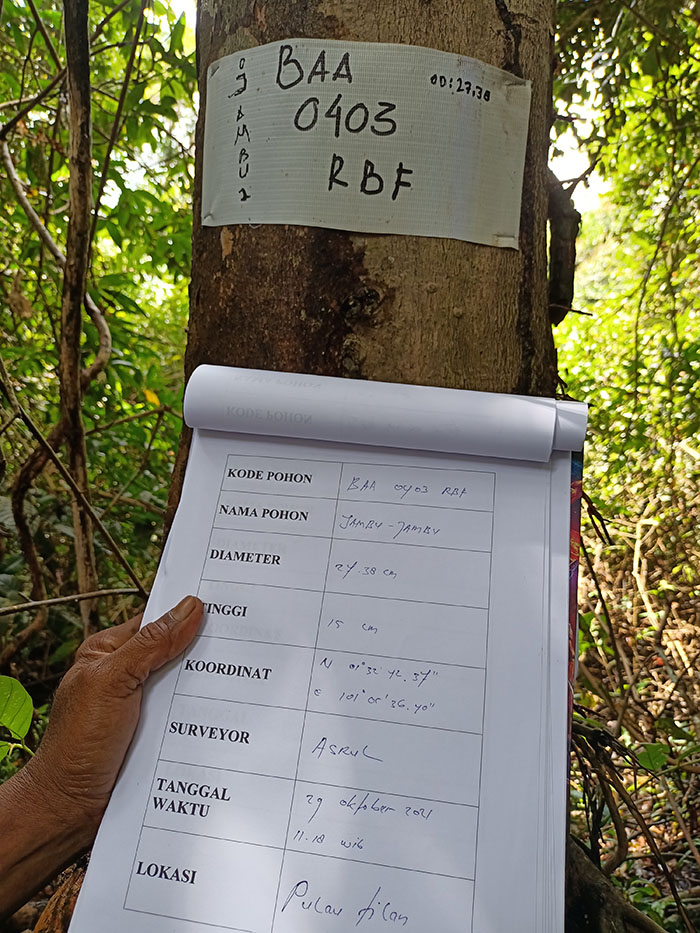 BAA
0403
RBF
DD:27,38
JAMBU2
KODE POHON BAA 0403 RBF
NAMA POHON JAMBU-JAMBU
DIAMETER 27.38 cm
TINGGI 15 cm
KOORDINAT N 01°32'42.37"
E 101°05'36.40"
SURVEYOR ASRUL
TANGGAL 29 oktober 2021
WAKTU 11.18 wib
LOKASI Pulau jilan